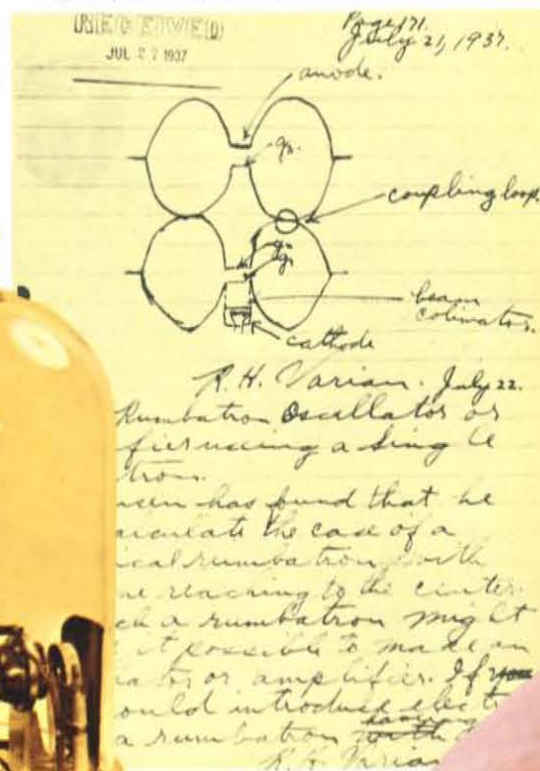 RECEIVED
JUL 27 1937
Page 171.
July 21, 1937.
anode.
g2.
coupling loop.
g2
g1
beam
colimators.
cathode
R. H. Varian. July 22.
Rumbatron Oscillator or
fier using a Singl e
tron.
nsen has found that he
alculate the case of a
ical rumbatron with
ne reaching to the center.
ch a rumbatron might
it possible to make an
lator or amplifier. If you
ould introduce electr
having
a rumbatron with
R. H. Varian